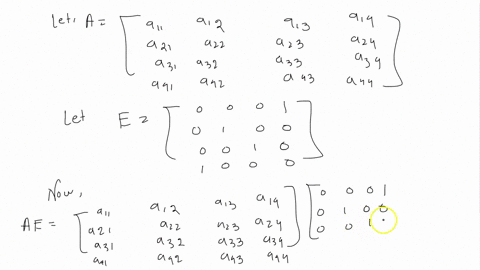 Let, A = [ a11 a12 a13 a14
a21 a22 a23 a24
a31 a32 a33 a34
a41 a42 a43 a44 ]
Let E = [ 0 0 0 1
0 1 0 0
0 0 1 0
1 0 0 0 ]
Now,
AE = [ a11 a12 a13 a14 ] [ 0 0 0 1
a21 a22 a23 a24 0 1 0 0
a31 a32 a33 a34 0 0 1
a41 a42 a43 a44